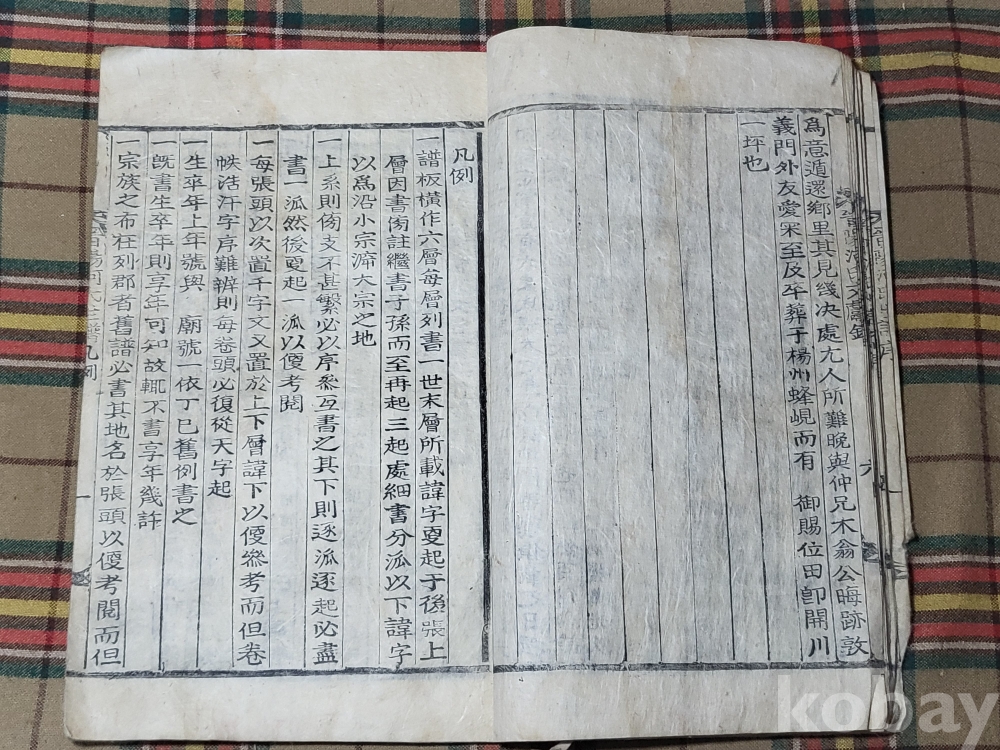 爲意遁還鄕里其見幾決處尤人所難晩與仲兄木翁公晦跡敦
義門外友愛采至及卒葬于楊州蜂峴而有 御賜位田卽開川
一坪也
凡例
一譜板橫作六層每層列書一世末層所載諱字更起于後張上
層因書傍註繼書子孫而至再起三起處細書分派以下諱字
以爲沿小宗溯大宗之地
一上系則傍支不甚繁必以序參互書之其下則逐派逐起必盡
書一派然後更起一派以便考閱
一每張頭以次置千字文又置於上下層諱下以便參考而但卷
帙浩汗字序難辨則每卷頭必復從天字起
一生卒年上年號與 廟號一依丁巳舊例書之
一旣書生卒年則享年可知故輒不書享年幾許
一宗族之布在列郡者舊譜必書其地名於張頭以便考閱而但
kobay